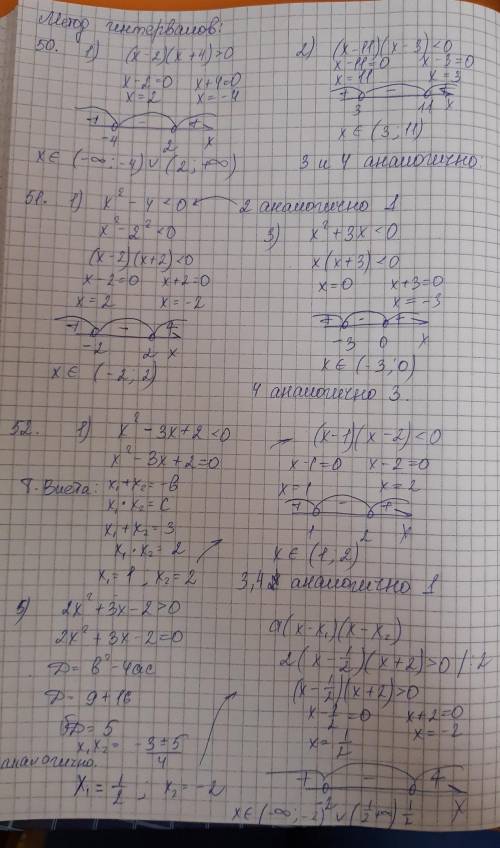 Метод интервалов:
50. 1) (x-2)(x+4)>0
x-2=0 x+4=0
x=2 x=-4
+ - +
-4 2 x
x∈ (-∞; -4) ∪ (2; +∞)
2) (x-11)(x-3)<0
x-11=0 x-3=0
x=11 x=3
+ - +
3 11 x
x∈ (3; 11)
3 и 4 аналогично
51. 1) x²-4<0
2 аналогично 1
x²-2²<0
(x-2)(x+2)<0
x-2=0 x+2=0
x=2 x=-2
+ - +
-2 2 x
x∈ (-2; 2)
3) x²+3x<0
x(x+3)<0
x=0 x+3=0
x=-3
+ - +
-3 0 x
x∈ (-3; 0)
4 аналогично 3.
52. 1) x²-3x+2<0
x²-3x+2=0
Т. Виета: x₁+x₂=-в
x₁·x₂=c
x₁+x₂=3
x₁·x₂=2
x₁=1, x₂=2
(x-1)(x-2)<0
x-1=0 x-2=0
x=1 x=2
+ - +
1 2 x
x∈ (1, 2)
3,4 аналогично 1
5) 2x²+3x-2>0
2x²+3x-2=0
D=в²-4ac
D=9+16
√D=5
x₁x₂= -3±5
4
аналогично.
x₁=1/2; x₂=-2
a(x-x₁)(x-x₂)
2(x-1/2)(x+2)>0 /:2
(x-1/2)(x+2)>0
x-1/2=0 x+2=0
x=1/2 x=-2
+ - +
-2 1/2 x
x∈(-∞; -2) ∪ (1/2 +∞)